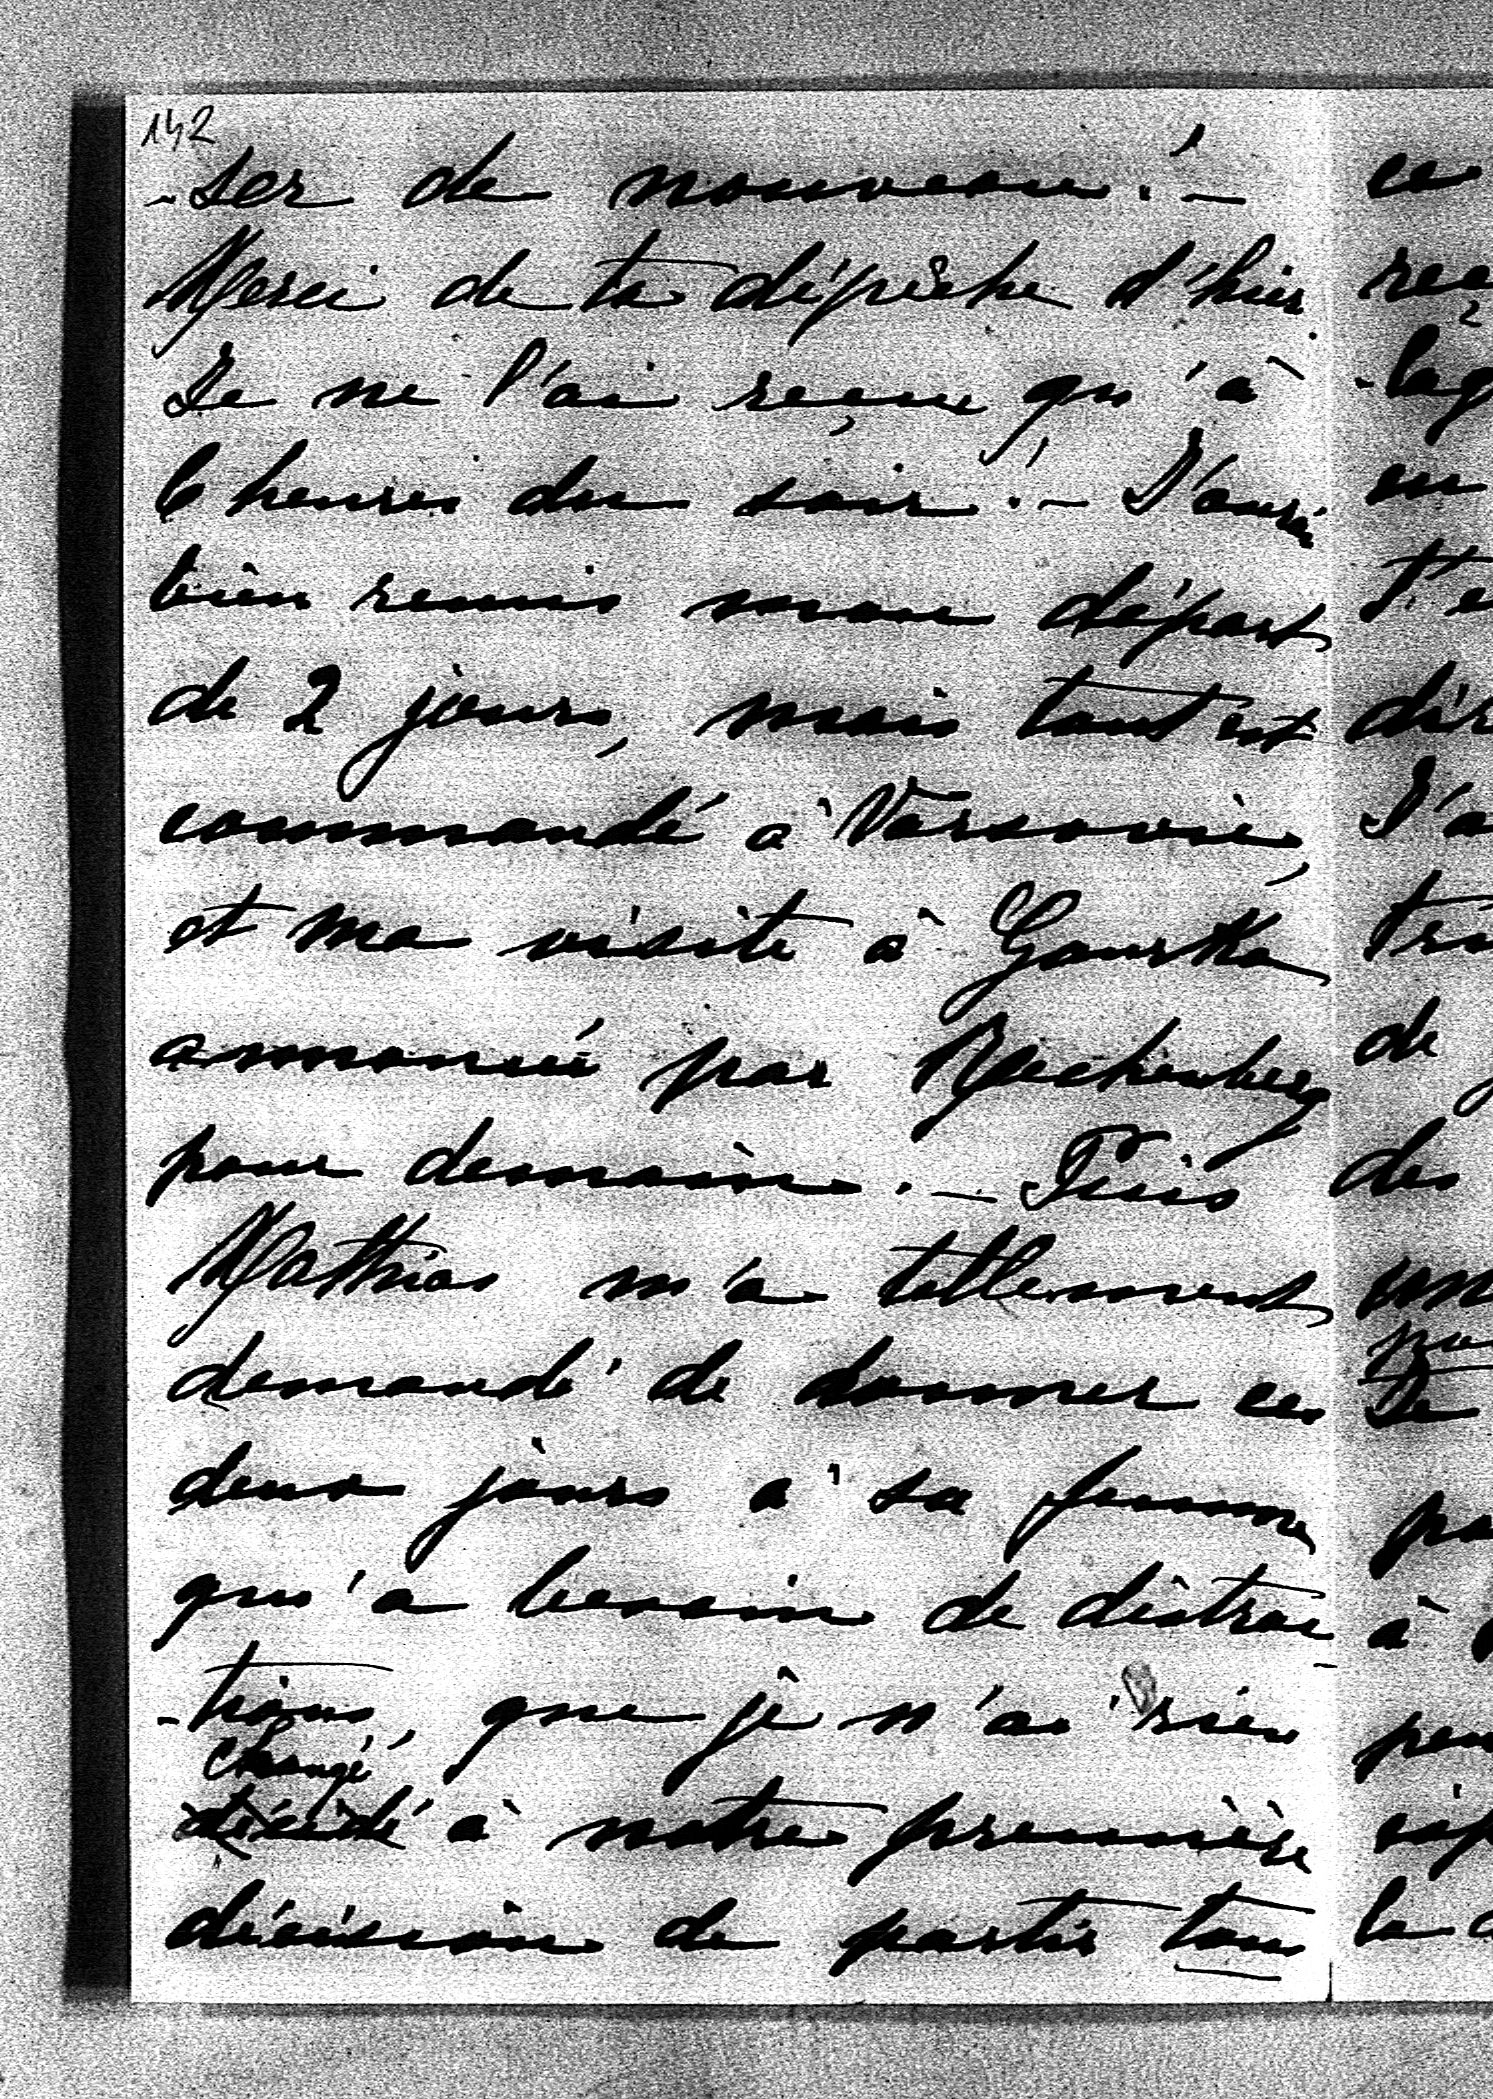 142
-ser de nouveau! -
Merci de ta dépêche d'hier.
Je ne l'ai reçue qu'à
6 heures du soir! - J'aurais
bien remis mon départ
de 2 jours, mais tout est
commandé à Varsovie,
et ma visite à Gourko
annoncée par Rechenberg
pour demain. - Puis
Mathias m'a tellement
demandé de donner ces
deux jours à sa femme
qui a besoin de distrac-
-tions, que je n'ai rien
changé
décidé à notre première
décision de partir tous
ce
reç
-lag
en
t'e
dir
J'a
tri
de
des
un
Je
pa
à
peu
la